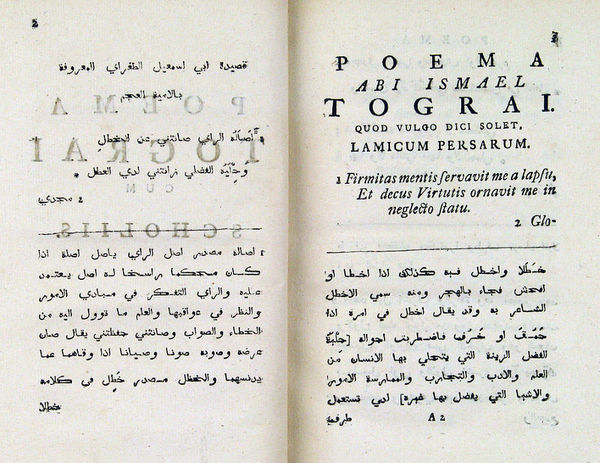 2
قصيدة ابي اسمعيل الطغراي المعروفة
بلامية العجم
أصالة الراي صانتني عن الخطل
وحلية الفضل زانتني لدي العطل
2 مجدي
اصالة مصدر اصل الراي ياصل اصلة اذا
كان محكما براسخا له اصل يعتمد
عليه والراي التفكر في مبادي الامور
والنظر في عواقبها والعلم ما توول اليه من
الخطاء والصواب وصانتني حفظتني يقال صان
عرضه وصوبه صونا وصيانا اذا وقاهما عما
يدنسهما والخطل مصدر خطل في كلامه
خطلا
3
POEMA
ABI ISMAEL
TOGRAI.
QUOD VULGO DICI SOLET,
LAMICUM PERSARUM.
1 Firmitas mentis servavit me a lapsu,
Et decus Virtutis ornavit me in
neglecto statu.
2 Glo-
خطلا واخطل فيه كذلك اذا اخطا او
افحش فجاء بالهجر ومنه سمي الاخطل
الشاعر به وقد يقال اخطل في امره اذا
حمق او خرف فاضطربت احواله [حلية
الفضل الزينة التي يتحلي بها الانسان من
العلم والادب والتجارب والممارسة الامور
والاشيا التي يفضل بها غيره] لدي تستعمل
A 2 ظرفية